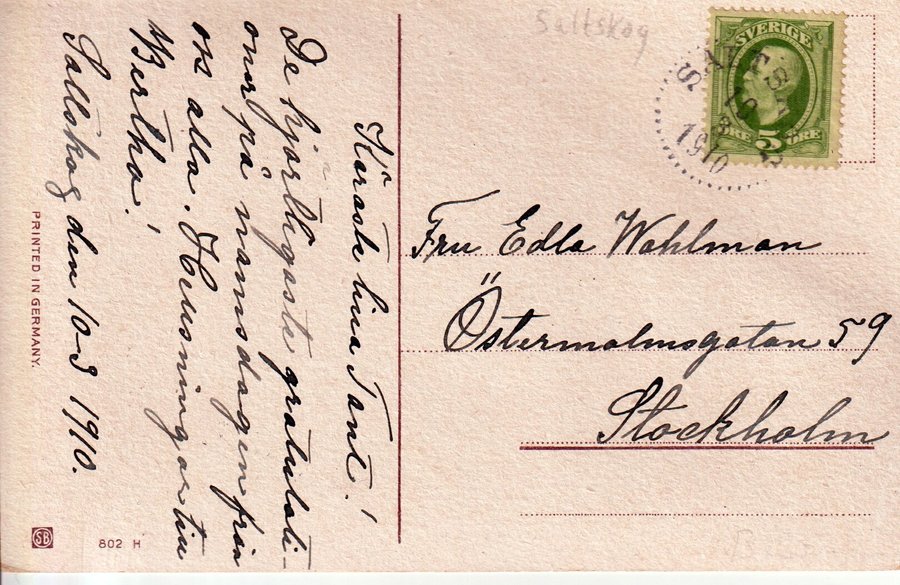 Saltskog
SVERIGE
ÖRE 5 ÖRE
1910
Käraste lilla Tant!
De hjärtligaste gratulati-
oner på namnsdagen från
oss alla. Helsningar till
Bertha!
Saltskog den 10-3 1910.
Fru Edla Wahlman
Östermalmsgatan 59
Stockholm
PRINTED IN GERMANY.
SB
802 H